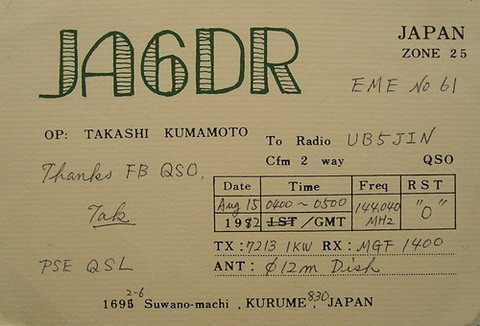 JA6DR
JAPAN
ZONE 25
EME No 61
OP: TAKASHI KUMAMOTO
To Radio UB5JIN
Cfm 2 way QSO
Thanks FB QSO,
Tak
PSE QSL
Date Time Freq RST
Aug 15 0400 ~ 0500 144.040 "O"
1982 JST/GMT MHz
TX: 7213 1KW RX: MGF 1400
ANT: φ12m Dish
2-6 830
1695 Suwano-machi, KURUME, JAPAN